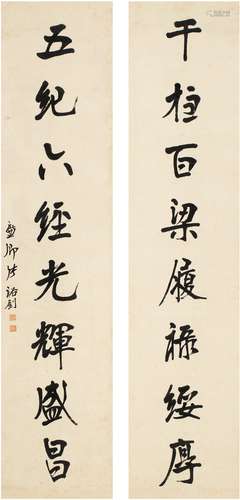 千柱百梁履祿綏厚
五紀六經光輝盛昌